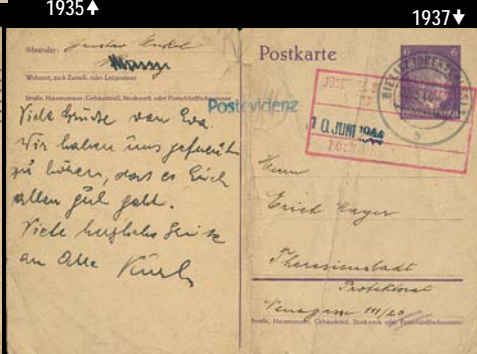 1935↑
1937↓
Absender:
Wohnort, auch Zustell- oder Leitpostamt
Straße, Hausnummer, Gebäudeteil, Stockwerk oder Postschließfachnummer
Viele Grüße von Eva.
Wir haben uns gefreut
zu hören, dass es Euch
allen gut geht.
Viele herzliche Grüße
an Alle Kurt
Postkarte
6
Postevidenz
10. JUNI 1944
b
Herrn
Erich Mayer
Theresienstadt
Protektorat
III/20
Straße, Hausnummer, Gebäudeteil, Stockwerk oder Postschließfachnummer